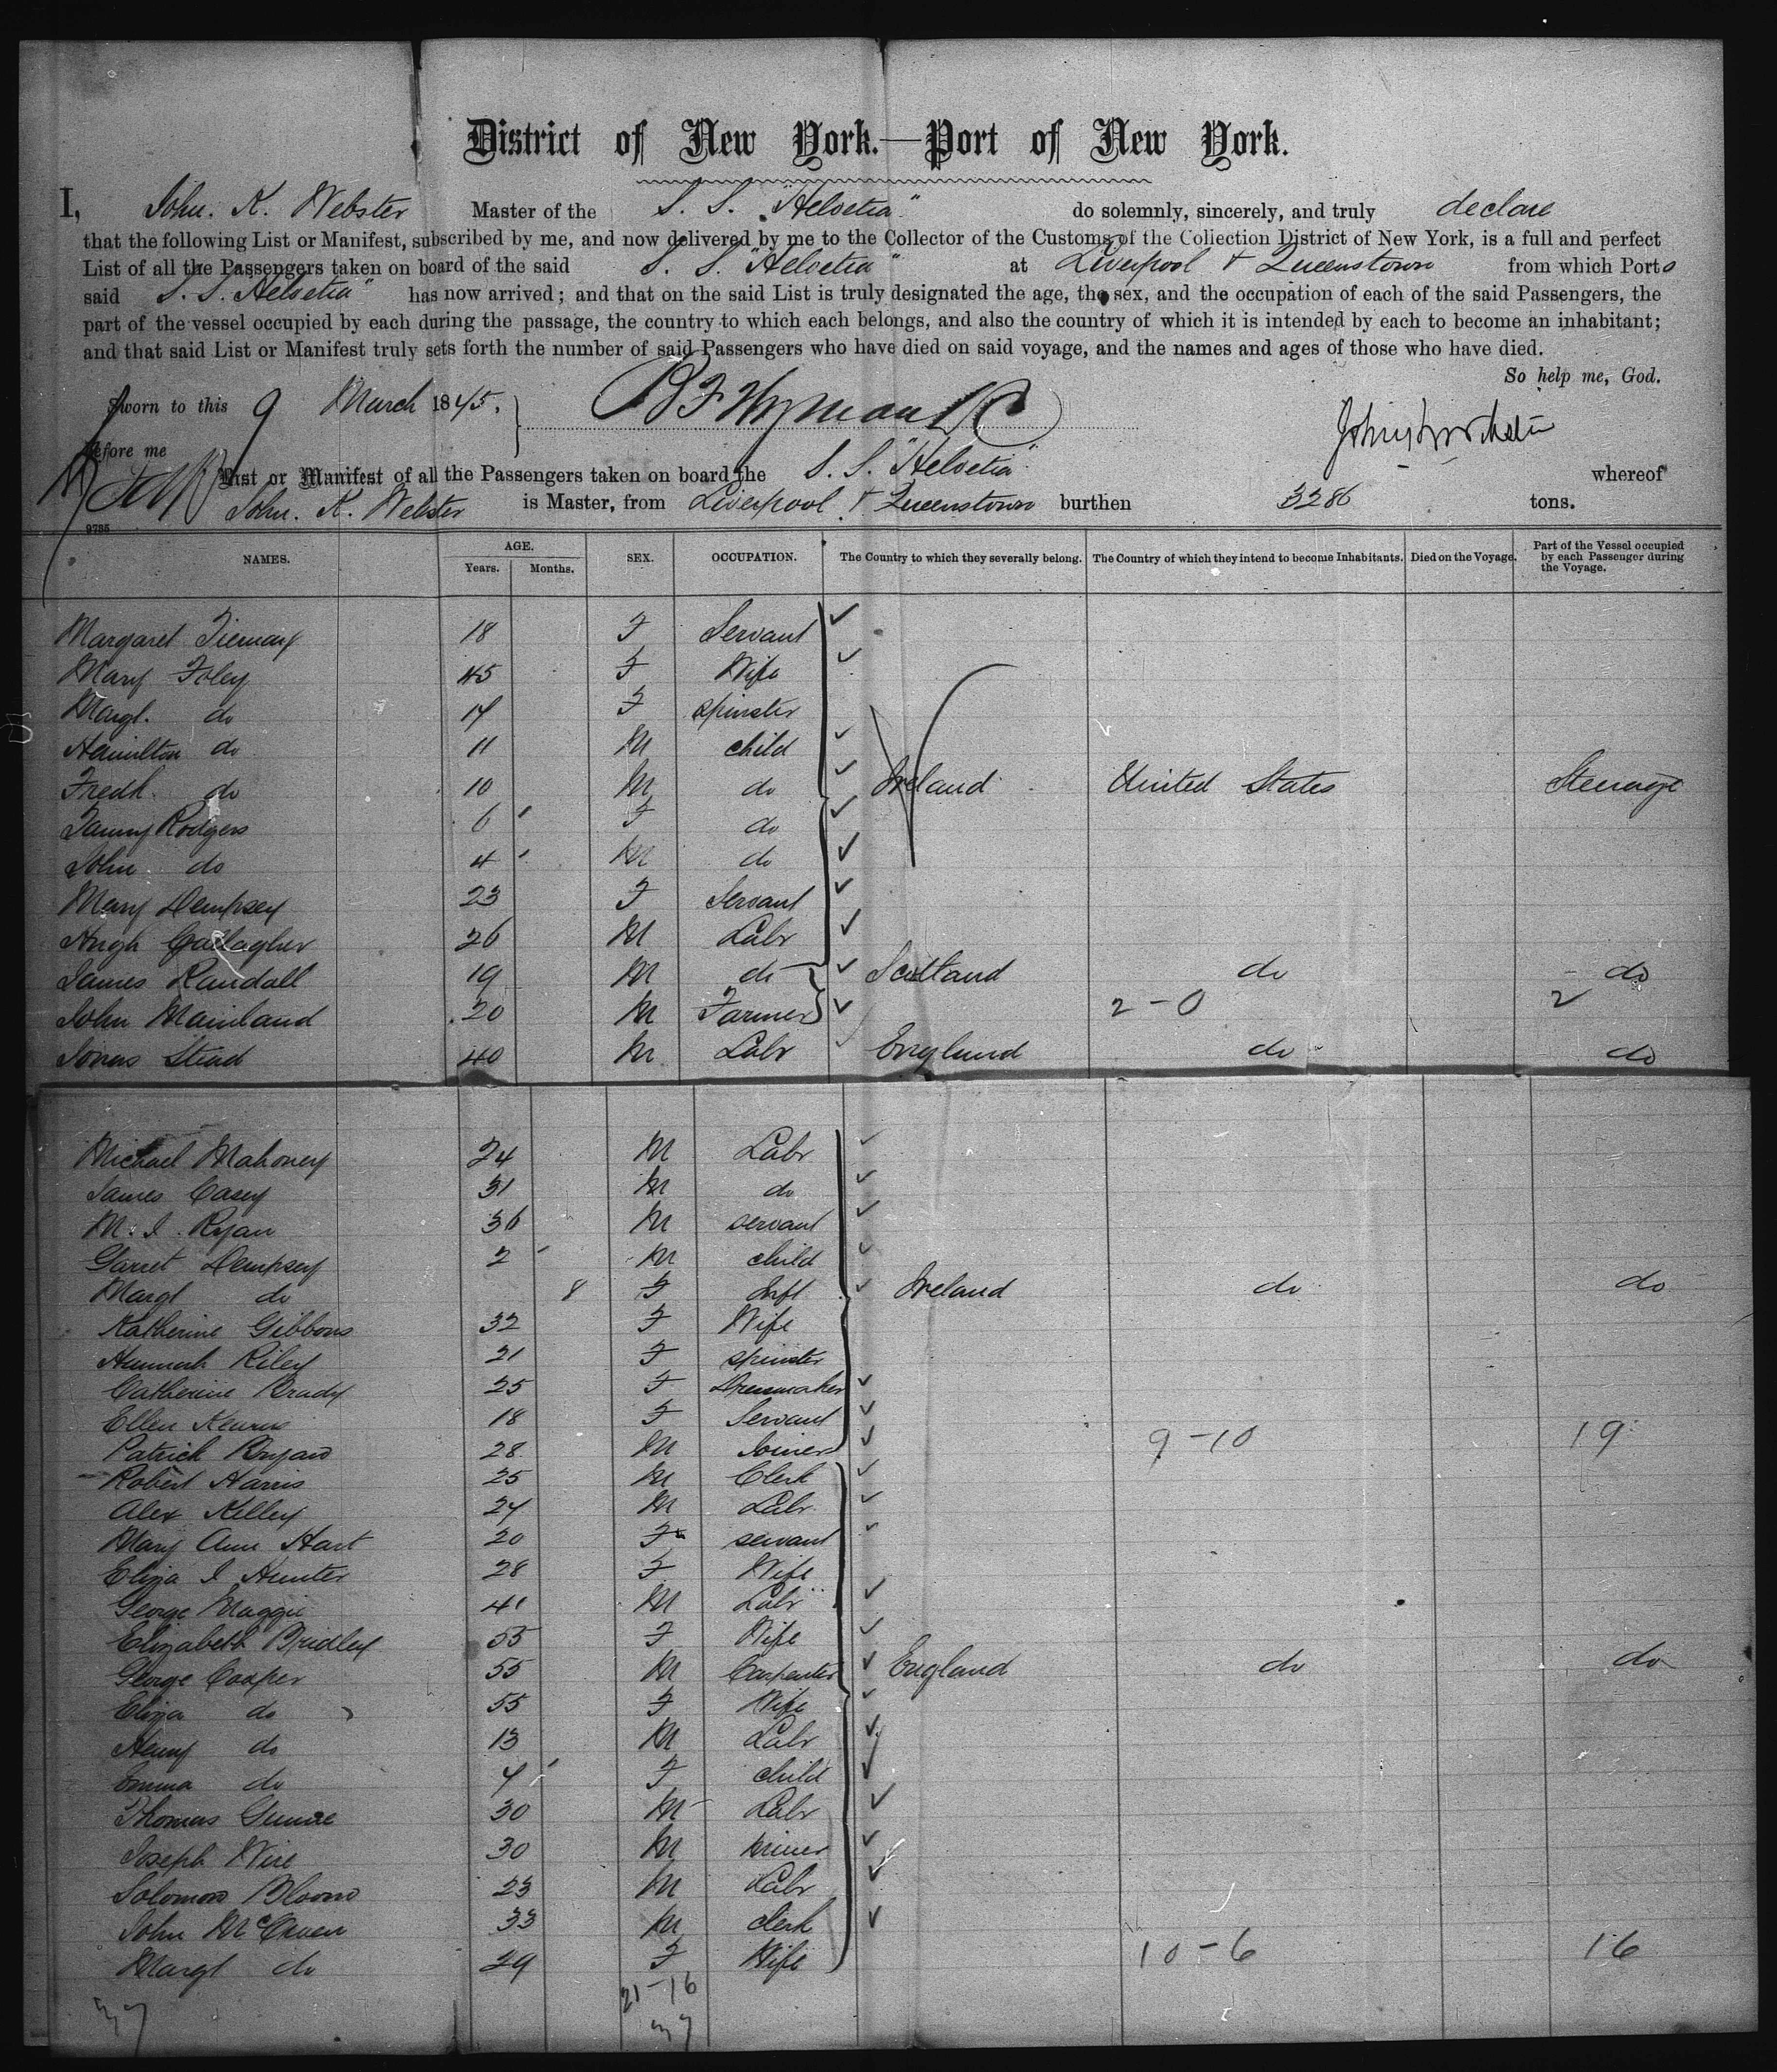 District of New York.—Port of New York.
I, John. K. Webster Master of the S. S. "Helvetia" do solemnly, sincerely, and truly declare
that the following List or Manifest, subscribed by me, and now delivered by me to the Collector of the Customs of the Collection District of New York, is a full and perfect
List of all the Passengers taken on board of the said S. S. "Helvetia" at Liverpool & Queenstown from which Ports
said S. S. Helvetia" has now arrived; and that on the said List is truly designated the age, the sex, and the occupation of each of the said Passengers, the
part of the vessel occupied by each during the passage, the country to which each belongs, and also the country of which it is intended by each to become an inhabitant;
and that said List or Manifest truly sets forth the number of said Passengers who have died on said voyage, and the names and ages of those who have died.
So help me, God.
Sworn to this 9 March 18
Before me
List or Manifest of all the Passengers taken on board the S. S. "Helvetia" whereof
John. K. Webster is Master, from Liverpool & Queenstown burthen 3286 tons.
9735
NAMES. AGE. Years. Months. SEX. OCCUPATION. The Country to which they severally belong. The Country of which they intend to become Inhabitants. Died on the Voyage. Part of the Vessel occupied by each Passenger during the Voyage.
Margaret Tiernay 18 F Servant
Mary Foley 45 F Wife
Margt. do 14 F spinster
Hamilton do 11 M child
Fredk. do 10 M do Ireland United States Steerage
Fanny Rodgers 6 F do
John do 4 M do
Mary Dempsey 23 F Servant
Hugh Gallagher 26 M Labr
James Randall 19 M do Scotland do do
John Mainland 20 M Farmer 2-0 2
Jonas Stead 40 M Labr England do do
Michael Mahoney 24 M Labr
James Casey 31 M do
M. J. Ryan 36 M servant
Garret Dempsey 2 M child
Margt do 8 F Inft Ireland do do
Katherine Gibbons 32 F Wife
Hannah Riley 21 F spinster
Catherine Brady 25 F Dressmaker
Ellen 18 F Servant
Patrick 28 M Joiner 9-10 19
Robert Harris 25 M Clerk
Alex Kelley 24 M Labr
Mary Ann Hart 20 F servant
Eliza J Hunter 28 F Wife
George Maggie 41 M Labr
Elizabeth Bridley 55 F Wife
George Cooper 55 M Carpenter England do do
Eliza do 55 F Wife
Henry do 13 M Labr
Emma do F child
Thomas 30 M Labr
Joseph Wire 30 M miner
Solomon Bloom 23 M Labr
John 33 M clerk
Margt do 29 F Wife 10-6 16
21-16
37 37